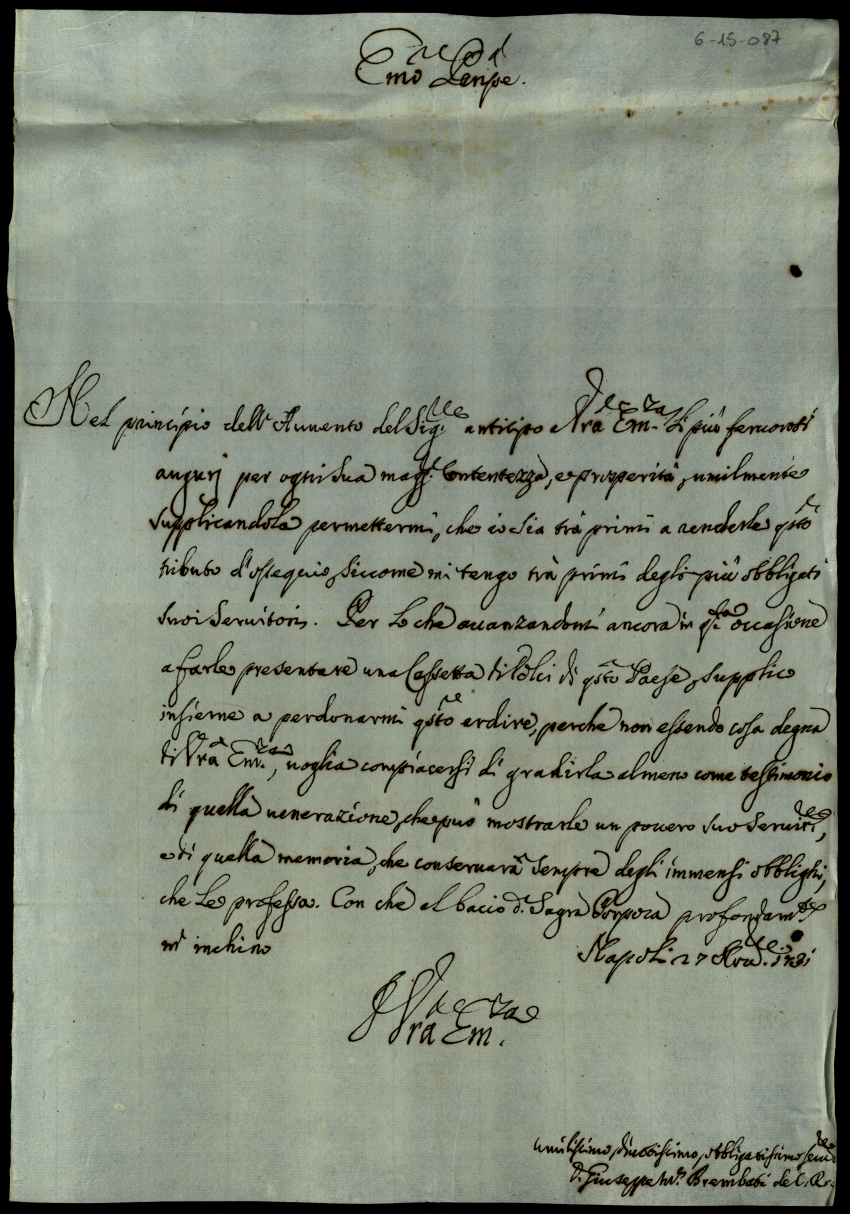 6-15-087
Em̄o Prnpe.
Nel principio dell'Auuento del Sig.re anticipo a Vra Em.za li più feruorosi
augurj per ogni sua magg. Contentezza, e prosperità, umilmente
supplicandola permettermi, che io sia trà primi a renderle qsto
tributo d'ossequio, siccome mi tengo trà primi degli più obbligati
suoi Seruitori. Per lo che auanzandomi ancora in qsta occasione
a farle presentare una Cassetta di dolci di qsto Paese, supplico
insieme a perdonarmi qsto ardire, perche non essendo cosa degna
di Vra Em.za, uoglia compiacersi di gradirla almeno come testimonio
di quella uenerazione, che può mostrarle un pouero suo Seruire,
e di quella memoria, che conseruarà sempre degli immensi obblighi,
che Le professa. Con che al bacio d. Sagra Porpora profondamte
m' inchino Napoli 27 Nou.e
Vra Em.za
umilissimo, diuotissimo, obbligatissimo seru.re
D. Giuseppe Ma. Brembati de C. R.